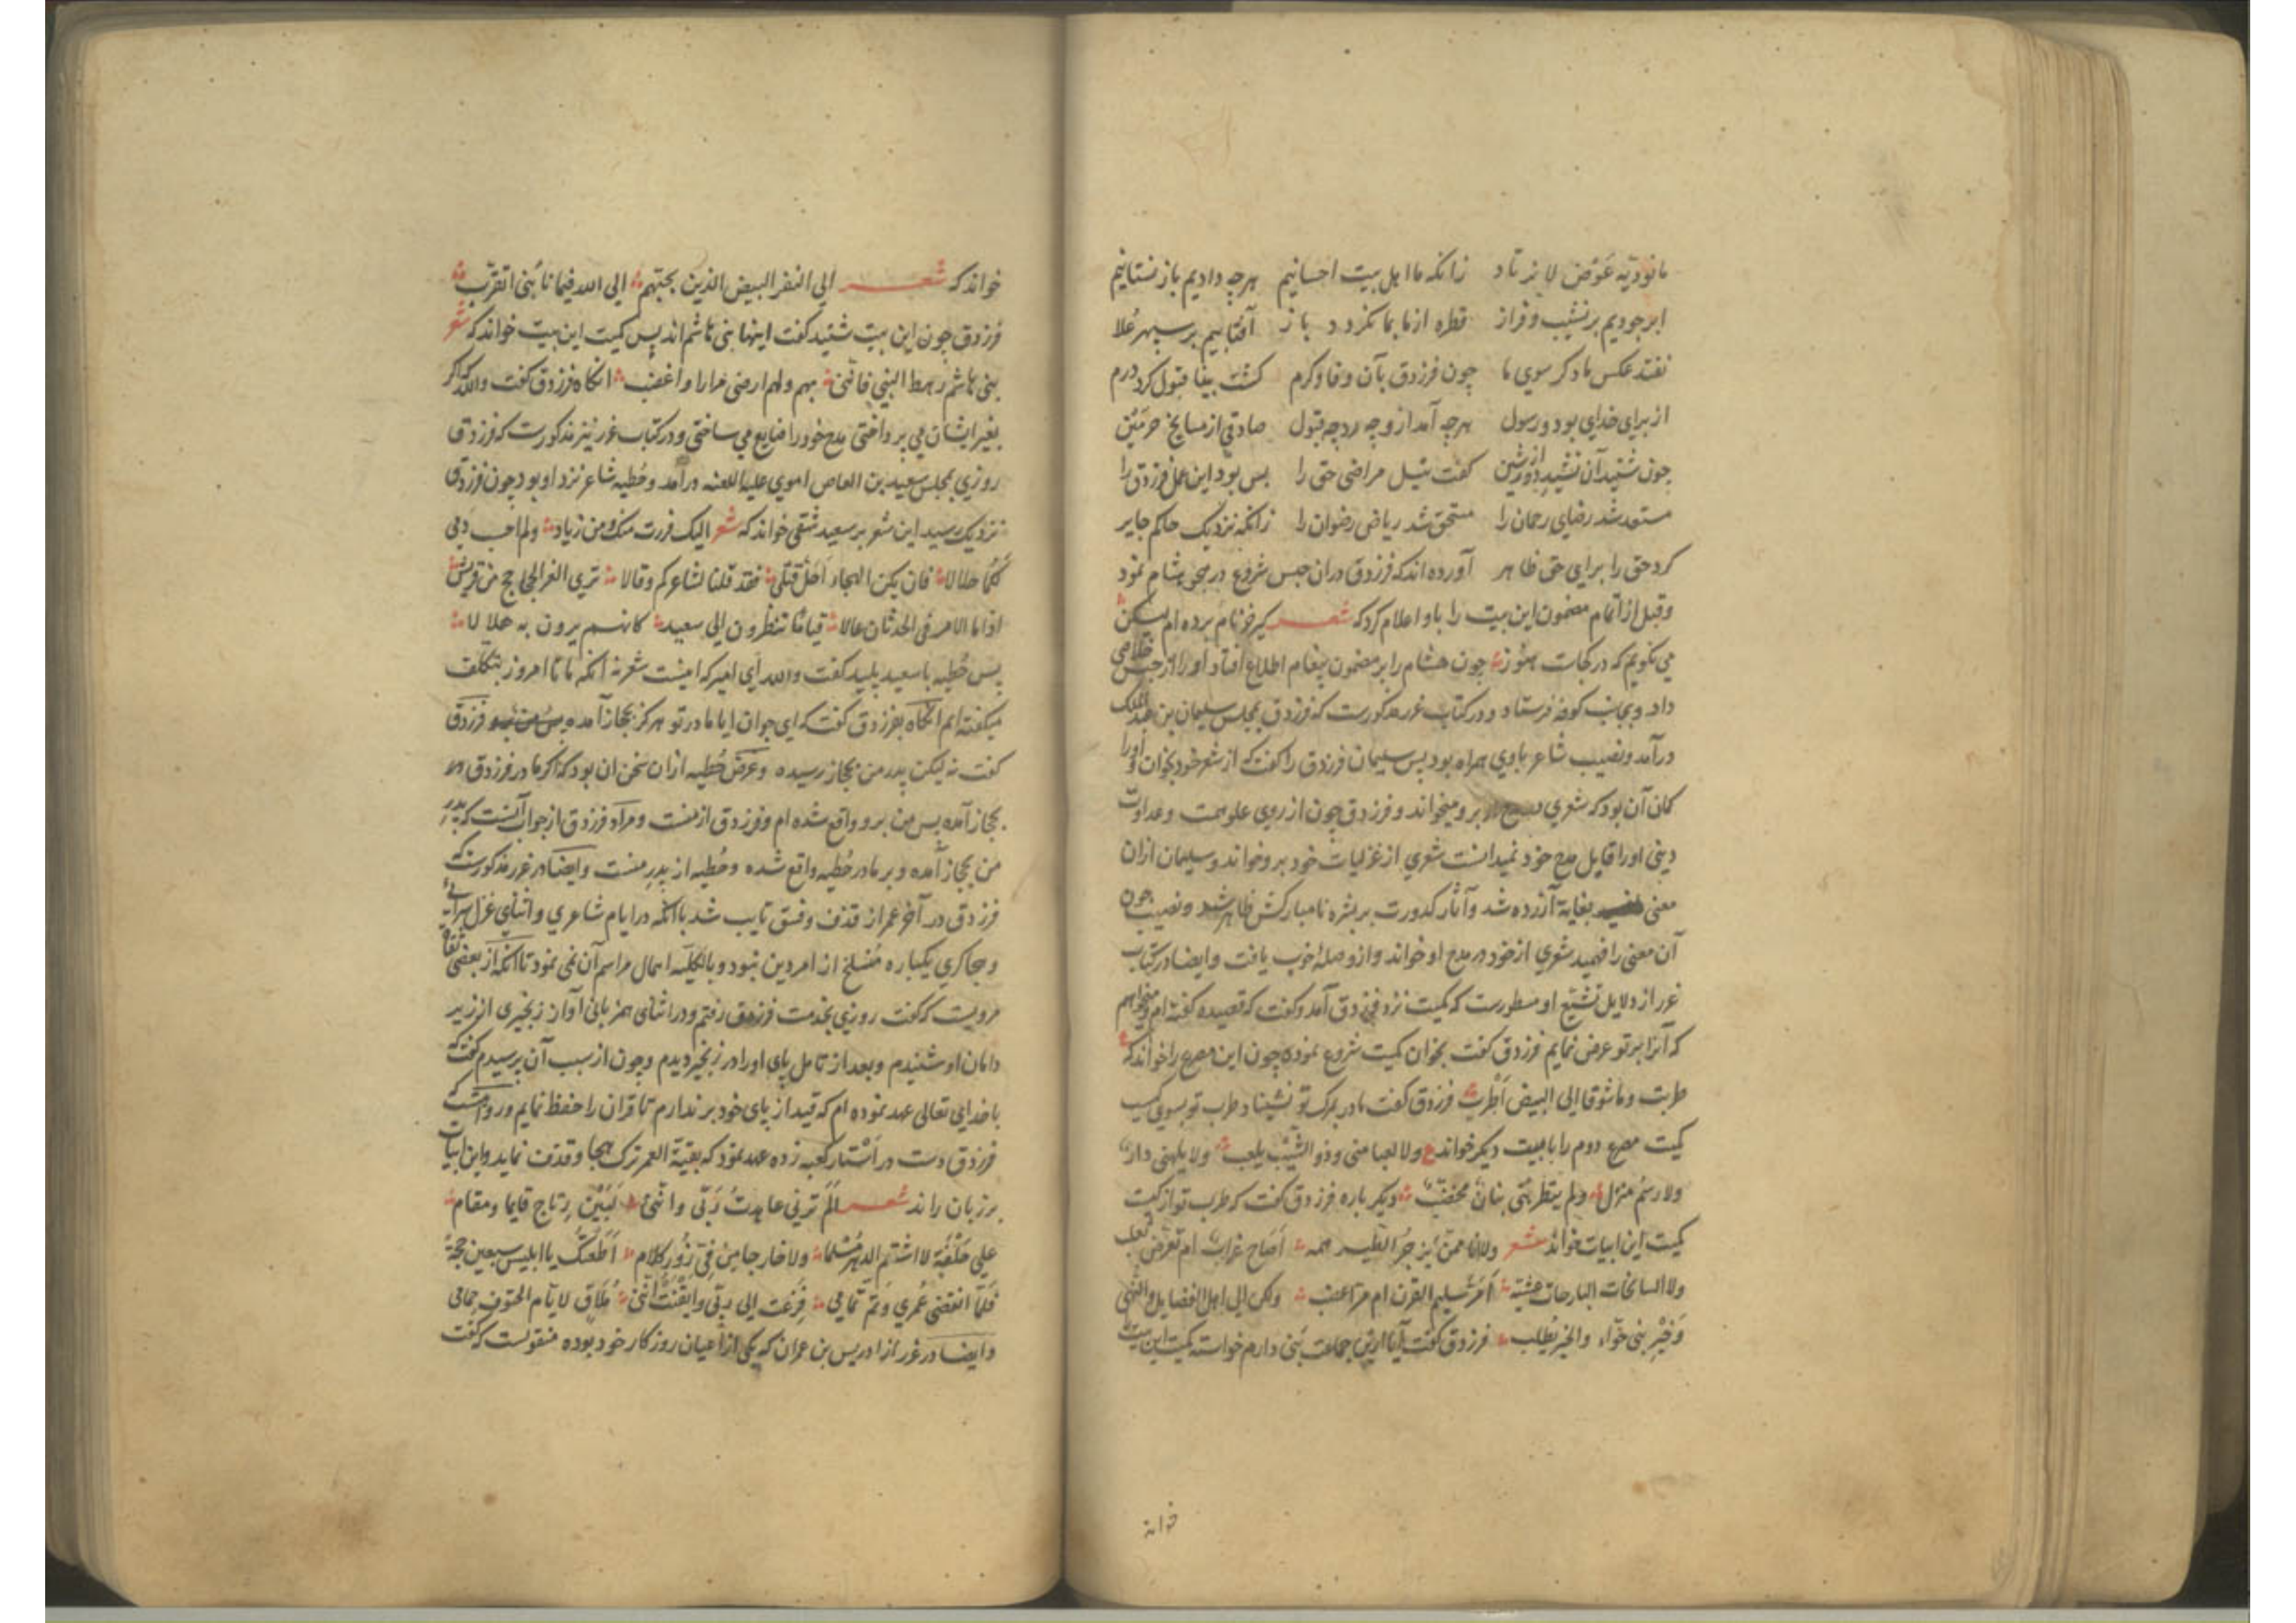 ما نودیه عوض لا نرتاد زانکه ما اهل بیت احسانیم هرچه دادیم باز نستانیم
ابر جودیم بر نشیب و فراز قطره از ما بما نکردد باز آفتابیم بر سپهر علا
نفتد عکس ما دکر سوی ما چون فرزدق بآن وفا و کرم کشت بینا قبول کرد درم
از برای خدای بود و رسول هرچه آمد ازو چه رد چه قبول صادقی از مشایخ حرمین
چون شنید آن نشید دور از شین کفت نیل مراضی حق را بس بود این عمل فرزدق را
مستعد شد رضای رحمان را مستحق شد ریاض رضوان را زانکه نزدیک حاکم جایر
کرد حق را برای حق ظاهر آورده اند که فرزدق در ان حبس شروع در هجو هشام نمود
وقبل از اتمام مضمون این بیت را باو اعلام کرد که شعر کیر خر نام برده ام لیکن
می نکویم که در کجات هنوز چون هشام را بر مضمون پیغام اطلاع افتاد او را از حبس خلاصی
داد و بجانب کوفه فرستاد و در کتاب غرر مذکورست که فرزدق بمجلس سلیمان بن عبدالملک
درآمد و نصیب شاعر با وی همراه بود پس سلیمان فرزدق را کفت که از شعر خود بخوان و او را
کمان آن بود که شعری در مدح او برو میخواند و فرزدق چون از روی علو همت و عداوت
دینی او را قابل مدح خود نمیدانست شعری از غزلیات خود برو خواند و سلیمان ازان
معنی بغایة آزرده شد و آثار کدورت بر بشره نامبارکش ظاهر شد و نصیب چون
آن معنی را فهمید شعری از خود در مدح او خواند و ازو صلهٔ خوب یافت و ایضا در کتاب
غرر از دلایل تشیع او مسطورست که کمیت نزد فرزدق آمد و کفت که قصیده کفته ام و میخواهم
که آنرا بر تو عرض نمایم فرزدق کفت بخوان کمیت شروع نموده چون این مصرع را خواند که ع
طربت وما شوقا الی البیض اطرب فرزدق کفت مادر بمرک تو نشیناد طرب تو بسوی کیست
کمیت مصرع دوم را با بیت دیکر خواند ع ولا لعبا منی وذو الشیب یلعب ولا یلهنی دار
ولا رسم منزل ولم یتطربنی بنان مخضب دیکر باره فرزدق کفت که طرب تو از کیست
کمیت این ابیات خواند شعر ولا انا ممن یزجر الطیر همه اصاح غراب ام تعرض ثعلب
ولا السانحات البارحات عشیة امر سلیم القرن ام مر اعضب ولکن الی اهل الفضایل والنهی
وخیر بنی حواء والخیر یطلب فرزدق کفت آیا ازین جماعت بنی دارم خواسته کمیت این بیت
خواند
خواند که شعر الی النفر البیض الذین بحبهم الی الله فیما نابنی اتقرب
فرزدق چون این بیت شنید کفت اینها بنی هاشم اند پس کمیت این بیت خواند که شعر
بنی هاشم رهط النبی فانی بهم ولهم ارضی مرارا واغضب انکاه فرزدق کفت والله که اکر
بغیر ایشان می پرداختی مدح خود را ضایع می ساختی و در کتاب غرر نیز مذکورست که فرزدق
روزی بمجلس سعید بن العاص اموی علیه اللعنه درآمد و حطیه شاعر نزد او بود چون فرزدق
نزدیک رسید این شعر بر سعید شقی خواند که شعر الیک فررت منک ومن زیاد ولم احسب دمی
لکما حلالا فان یکن الهجاء احل قتلی فقد قلنا لشاعرکم وقالا تری الغر الجحاجح من قریش
اذا ما الامر فی الحدثان عالا قیاما تنظرون الی سعید کانهم یرون به هلالا
پس حطیه با سعید پلید کفت والله ای امیر که اینست شعر نه آنکه ما تا امروز بتکلف
میکفته ایم آنکاه بفرزدق کفت که ای جوان ایا مادر تو هرکز بحجاز آمده فرزدق
کفت نه لیکن پدر من بحجاز رسیده و غرض حطیه ازان سخن ان بود که اکر مادر فرزدق
بحجاز آمده پس من برو واقع شده ام و فرزدق از منست و مراد فرزدق از جواب آنست که پدر
من بحجاز آمده و بر مادر حطیه واقع شده و حطیه از پدر منست و ایضا در غرر مذکورست که
فرزدق در آخر عمر از قذف و فسق تایب شد با آنکه در ایام شاعری و اثنای غزل سرایی
و هجاکری یکباره منسلخ از امر دین نبود و بالکلیه اهمال مراسم آن نمی نمود تا آنکه از بعضی ثقات
مرویست که کفت روزی بخدمت فرزدق رفتم و در اثنای همزبانی آواز زنجیری از زیر
دامان او شنیدم و بعد از تامل پای او را در زنجیر دیدم و چون از سبب آن پرسیدم کفت که
با خدای تعالی عهد نموده ام که قید از پای خود بر ندارم تا قران را حفظ نمایم و روایتست که
فرزدق دست در استار کعبه زده عهد نمود که بقیة العمر ترک هجا و قذف نماید و این ابیات
بر زبان راند شعر الم ترنی عاهدت ربی واننی لبین رتاج قایما ومقام
علی حلفة لا اشتم الدهر مسلما ولا خارجا من فی زور کلام اطعتک یا ابلیس سبعین حجة
فلما انقضی عمری وتم تمامی فزعت الی ربی وایقنت اننی ملاق لایام الحتوف حمامی
وایضا در غرر از ادریس بن عمران که یکی از اعیان روزکار خود بوده منقولست که کفت